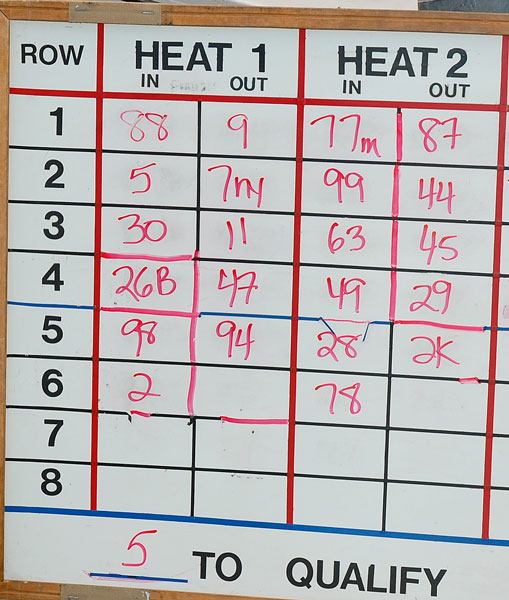 ROW HEAT 1 HEAT 2
IN OUT IN OUT
1 88 9 77m 87
2 5 7ny 99 44
3 30 11 63 45
4 26B 47 49 29
5 98 94 28 2K
6 2 78
7
8
5 TO QUALIFY